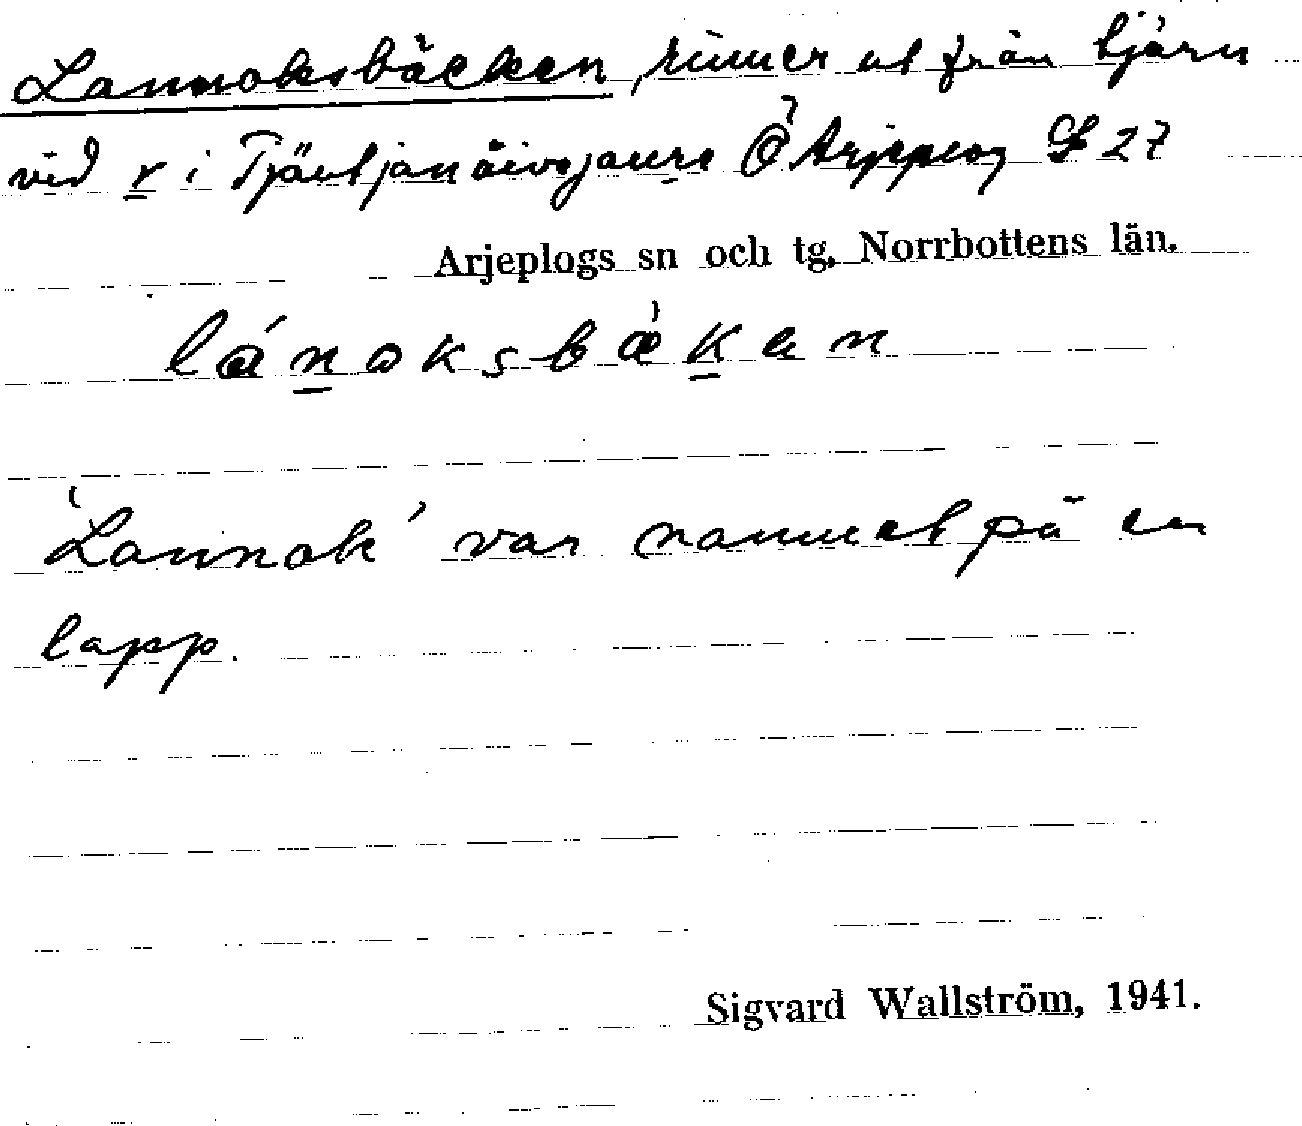 Lannoksbäcken, rinner ut från tjärn
vid r i Tjäutjanåivejaure Ö Arjeplog S 27
Arjeplogs sn och tg. Norrbottens län.
lánoksbækan
'Lannok' var namnet på en
lapp.
Sigvard Wallström, 1941.